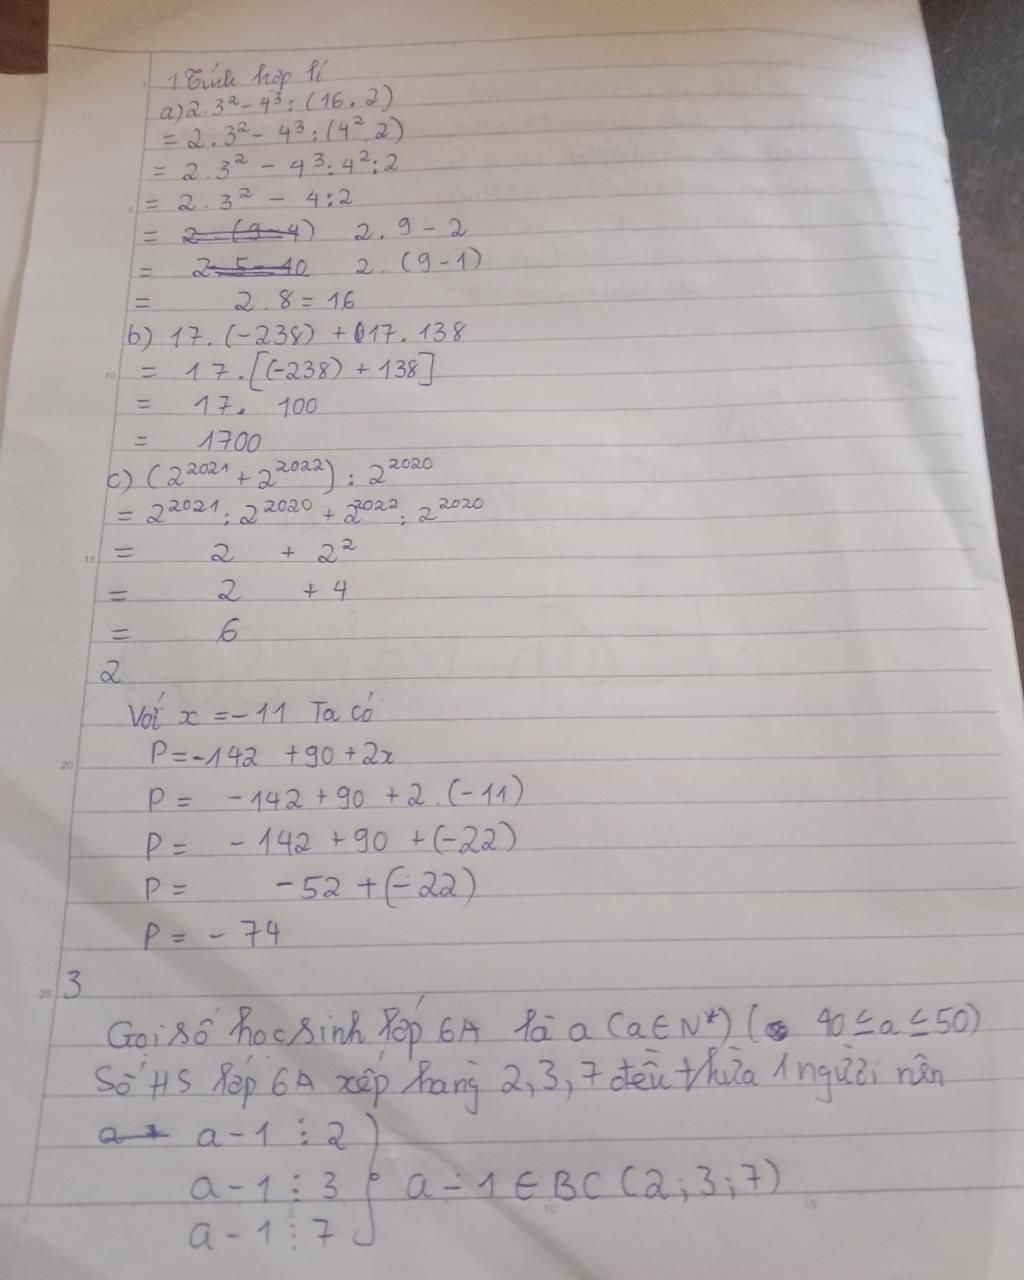 1 Tính hợp lí
a) 2.3² - 4³ : (16.2)
= 2.3² - 4³ : (4² 2)
= 2.3² - 4³ : 4² : 2
= 2.3² - 4 : 2
= 2 (9-4) 2.9 - 2
= 2.5=10 2.(9-1)
= 2.8 = 16
b) 17.(-238) + 17.138
= 17.[(-238) + 138]
= 17. 100
= 1700
c) (2²⁰²¹ + 2²⁰²²) : 2²⁰²⁰
= 2²⁰²¹ : 2²⁰²⁰ + 2²⁰²² : 2²⁰²⁰
= 2 + 2²
= 2 + 4
= 6
2
Với x = -11 Ta có
P = -142 + 90 + 2x
P = -142 + 90 + 2.(-11)
P = -142 + 90 + (-22)
P = -52 + (-22)
P = -74
3
Gọi số học sinh lớp 6A là a (a ∈ N*) ( 40 ≤ a ≤ 50)
Số HS lớp 6A xếp hàng 2, 3, 7 đều thừa 1 người nên
a - 1 ⋮ 2
a - 1 ⋮ 3 } a - 1 ∈ BC (2; 3; 7)
a - 1 ⋮ 7